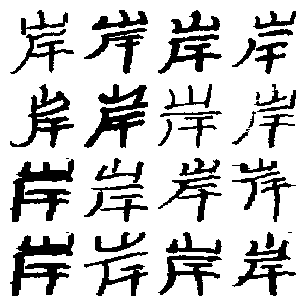 岸岸岸岸
岸岸岸岸
岸岸岸岸
岸岸岸岸